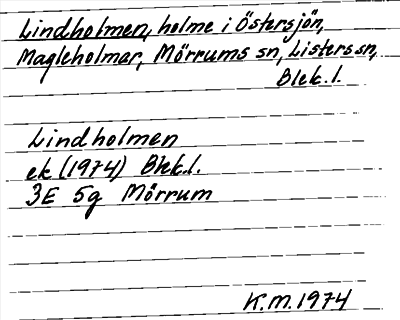 Lindholmen, holme i Östersjön,
Magleholmar, Mörrums sn, Listers sn,
Blek. l.
Lindholmen
ek (1974) Blek. l.
3E 5g Mörrum
K.M. 1974